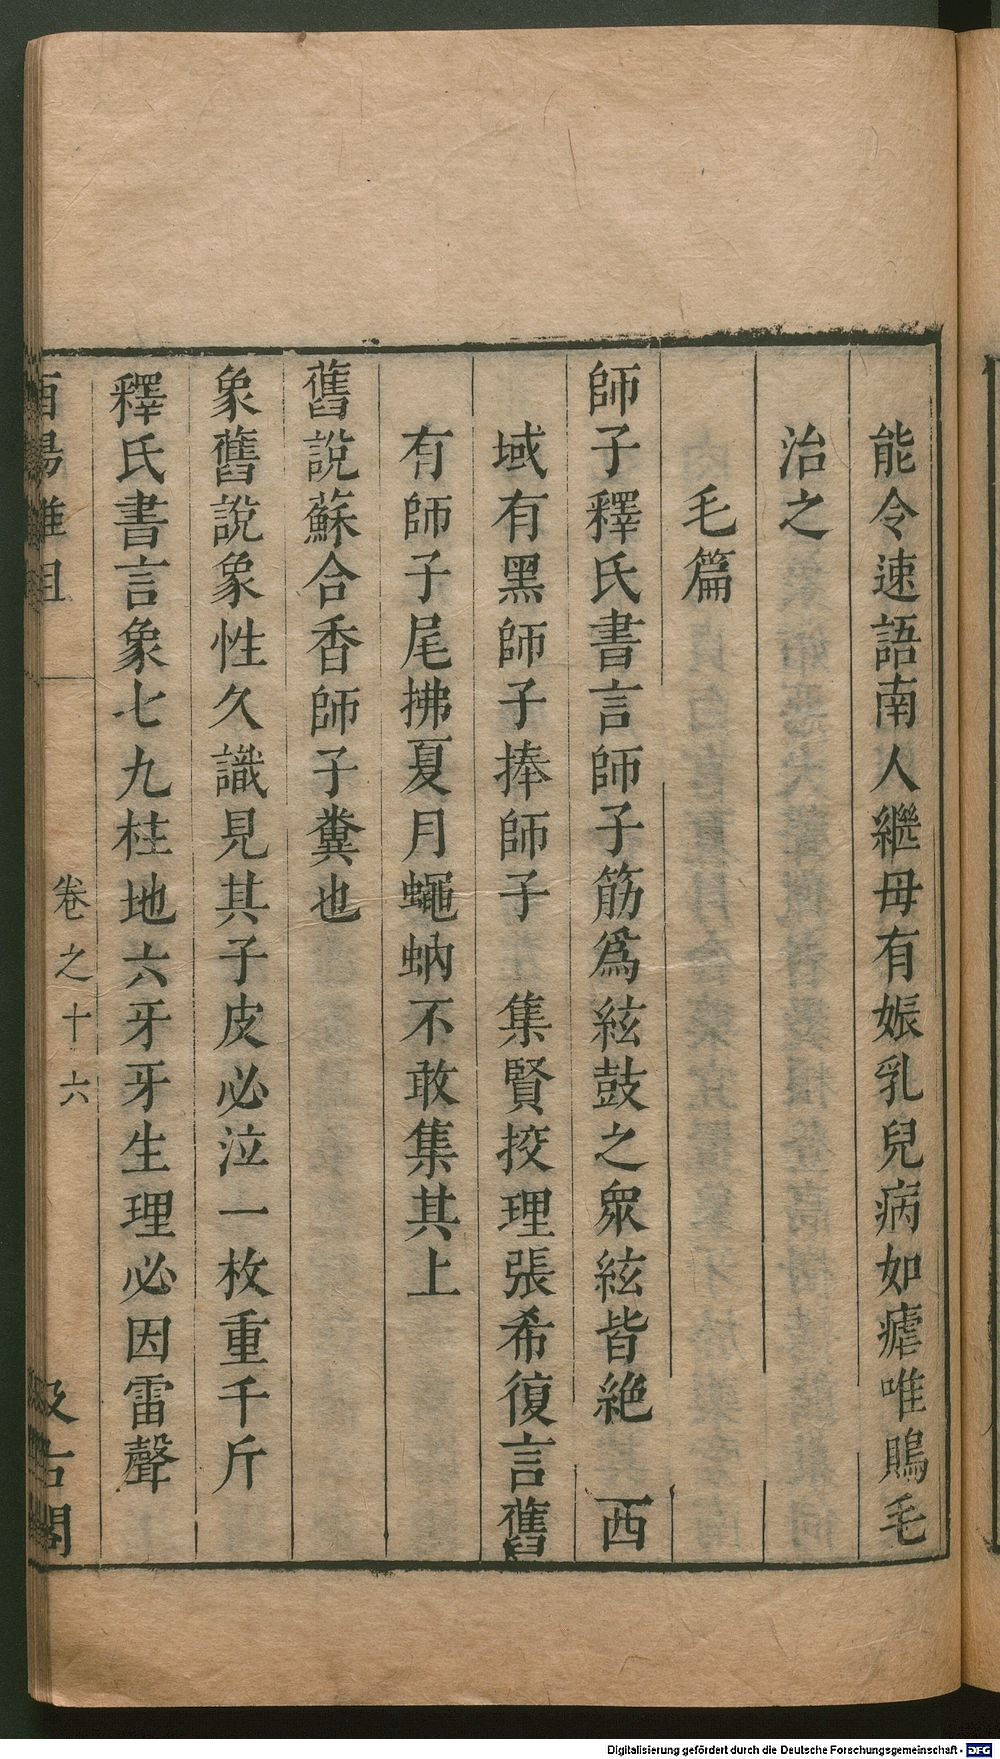 能令速語南人繼母有娠乳兒病如瘧唯鵙毛
治之
毛篇
師子釋氏書言師子筋為絃鼓之眾絃皆絕　西
域有黑師子捧師子　集賢挍理張希復言舊
有師子尾拂夏月蠅蚋不敢集其上
舊說蘇合香師子糞也
象舊說象性久識見其子皮必泣一枚重千斤
釋氏書言象七九柱地六牙牙生理必因雷聲
酉陽雜俎　卷之十六　汲古閣
Digitalisierung gefördert durch die Deutsche Forschungsgemeinschaft - DFG